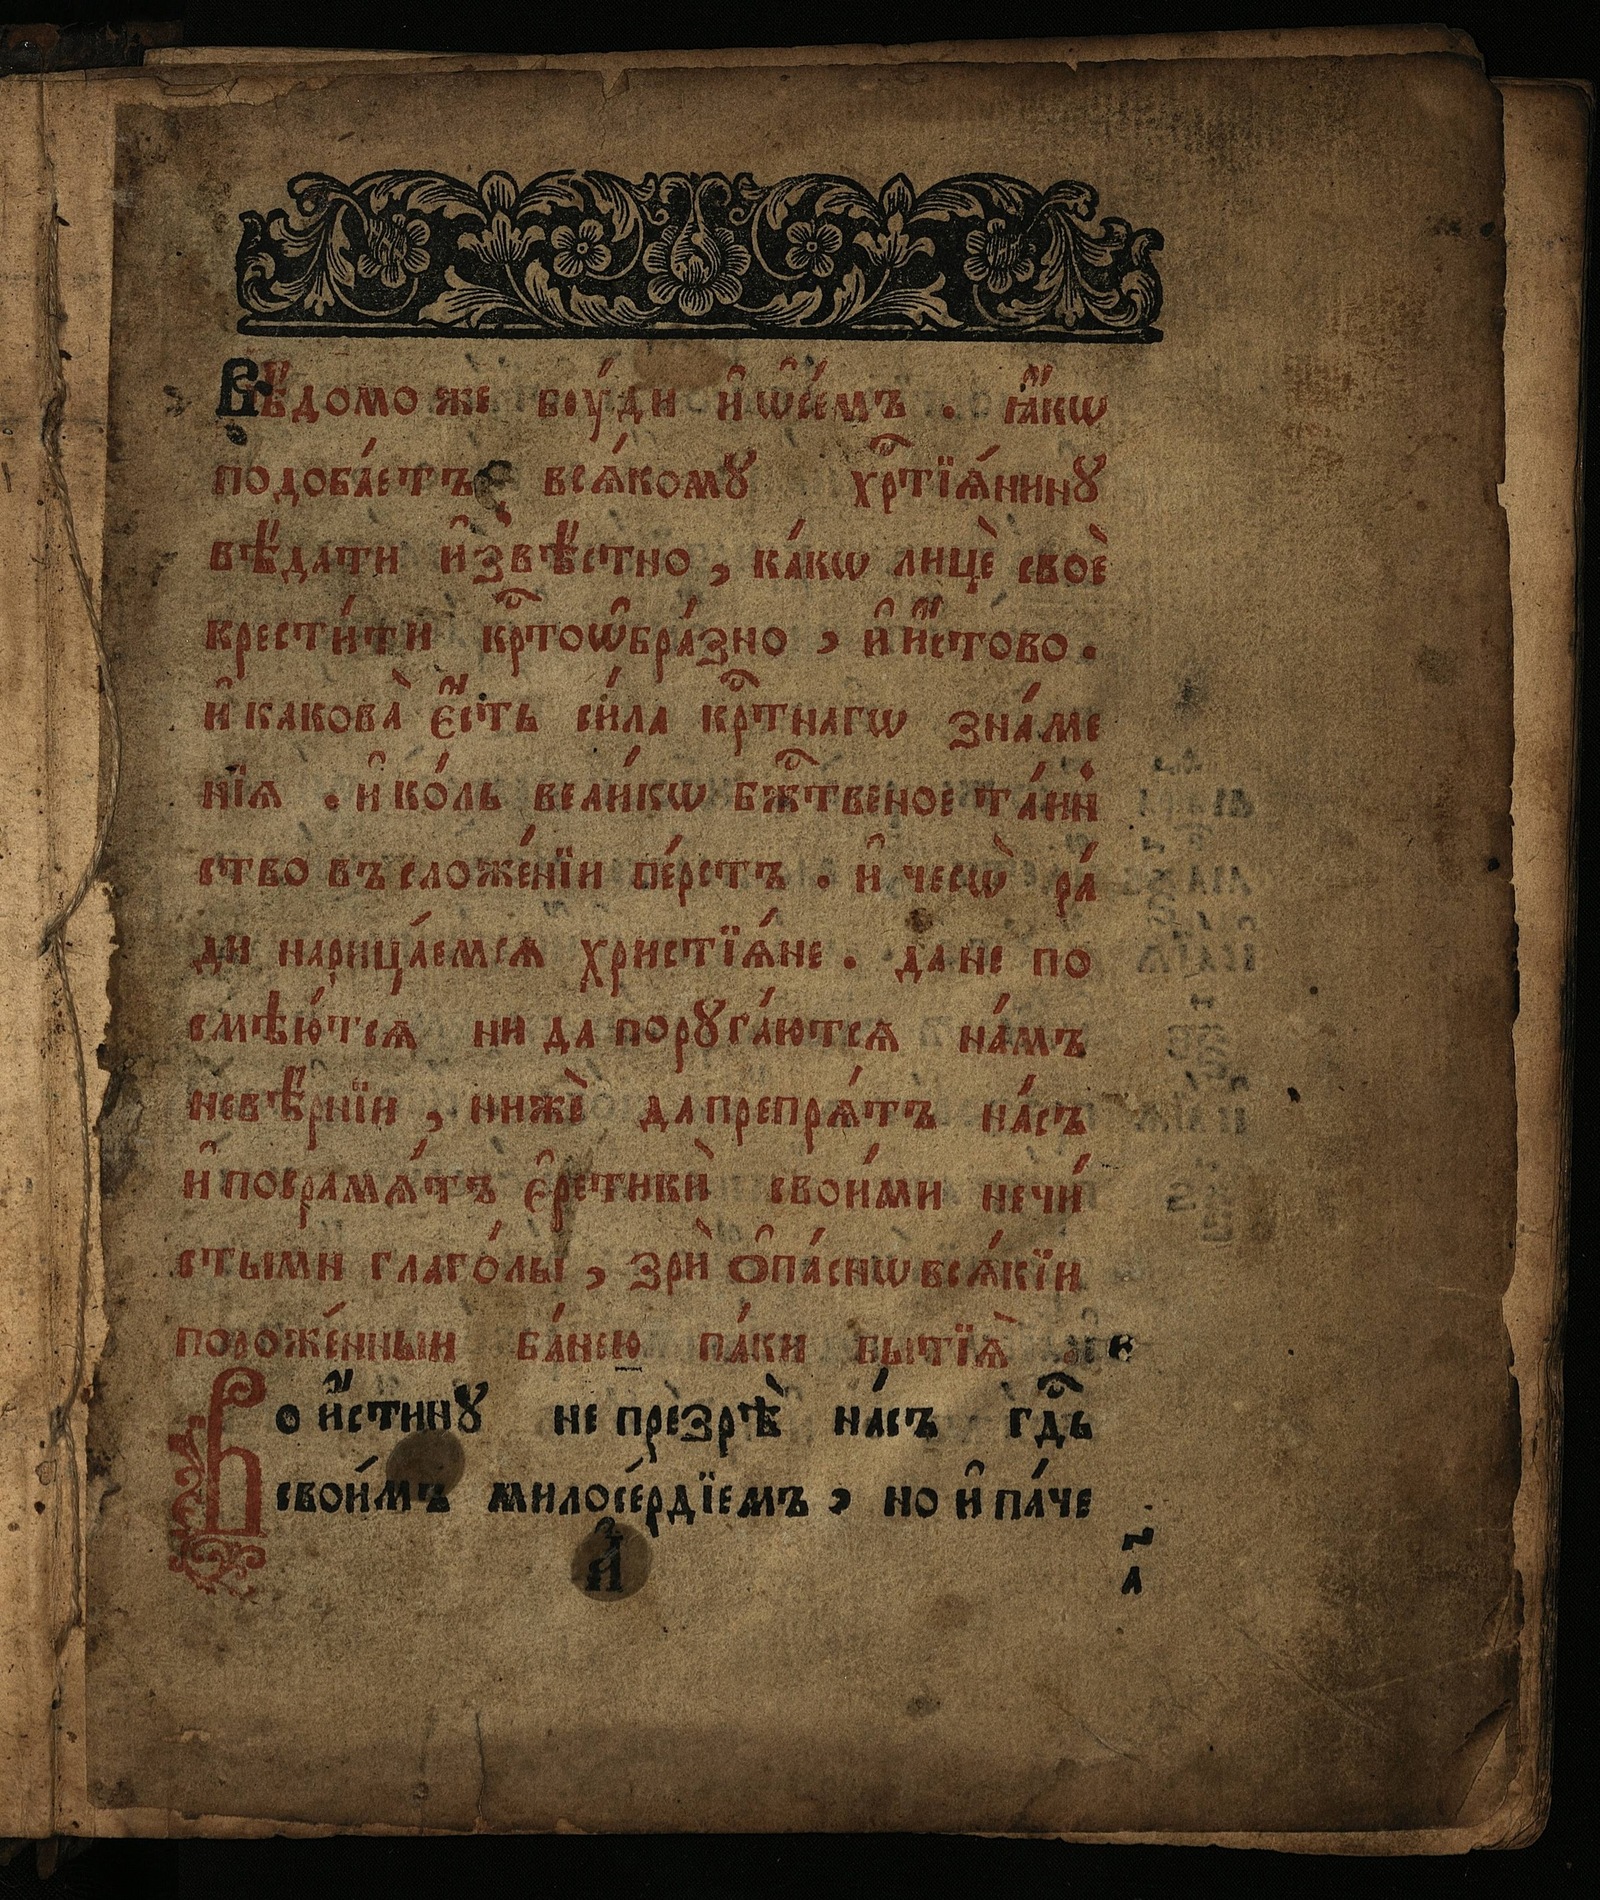 Вѣ́домо же бꙋ́ди и҆ ѡ҆ се́мъ . ꙗ҆́кѡ
подоба́етъ всѧ́комꙋ хрⷭ҇тїѧ́нинꙋ
вѣ́дати и҆звѣ́стно , ка́кѡ лицѐ своѐ
крести́ти крⷭ҇тоѡ҆бра́зно , и҆ и҆́стово .
и҆ какова̀ є҆́сть си́ла крⷭ҇тнагѡ зна́ме
нїѧ . и҆ ко́ль вели́кѡ бжⷭ҇твеное та́ин
ство въ сложе́нїи пе́рстъ . и҆ чесѡ̀ ра́
ди нарица́емсѧ христїѧ́не . да не по
смѣю́тсѧ ни да порꙋга́ютсѧ на́мъ
невѣ́рнїи , нижѐ да препрѧ́тъ на́съ
и҆ посрамѧ́тъ є҆ретикѝ свои́ми нечи́
стыми глаго́лы , зрѝ ѻ҆па́снѡ всѧ́кїи
пороже́нныи ба́нею па́ки бытїѧ̀
Во и҆́стинꙋ не презрѣ̀ на́съ гдⷭ҇ь
свои́мъ милосе́рдїемъ , но и҆ па́че
а҃